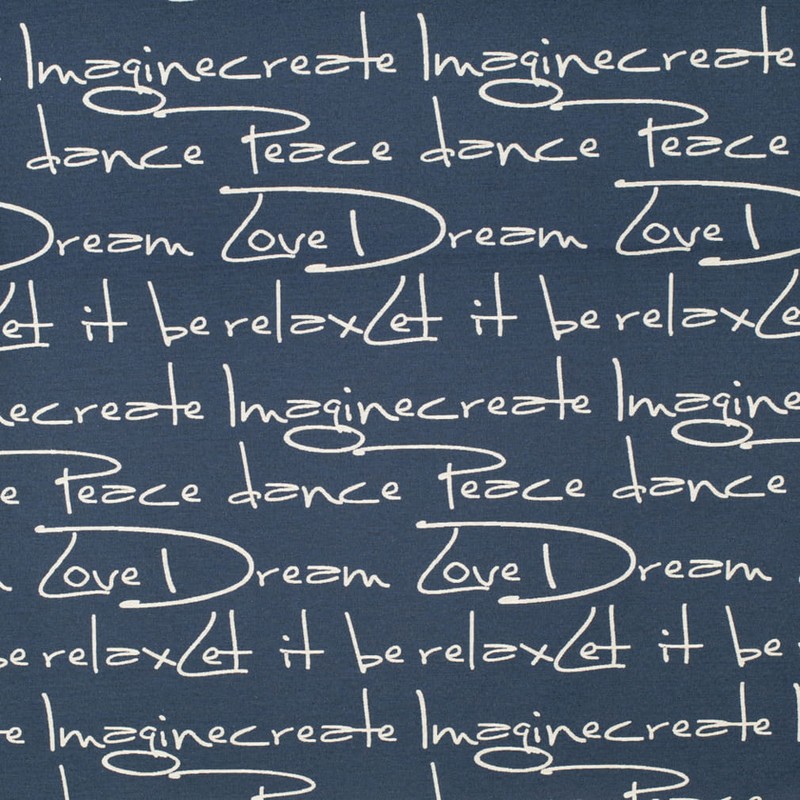 Imaginecreate Imaginecreate
dance Peace dance Peace
Dream Love Dream Love
Let it be relax Let it be relax Le
ecreate Imaginecreate Imagine
e Peace dance Peace dance
Love Dream Love Dream
be relax Let it be relax Let it be
e Imaginecreate Imaginecreate